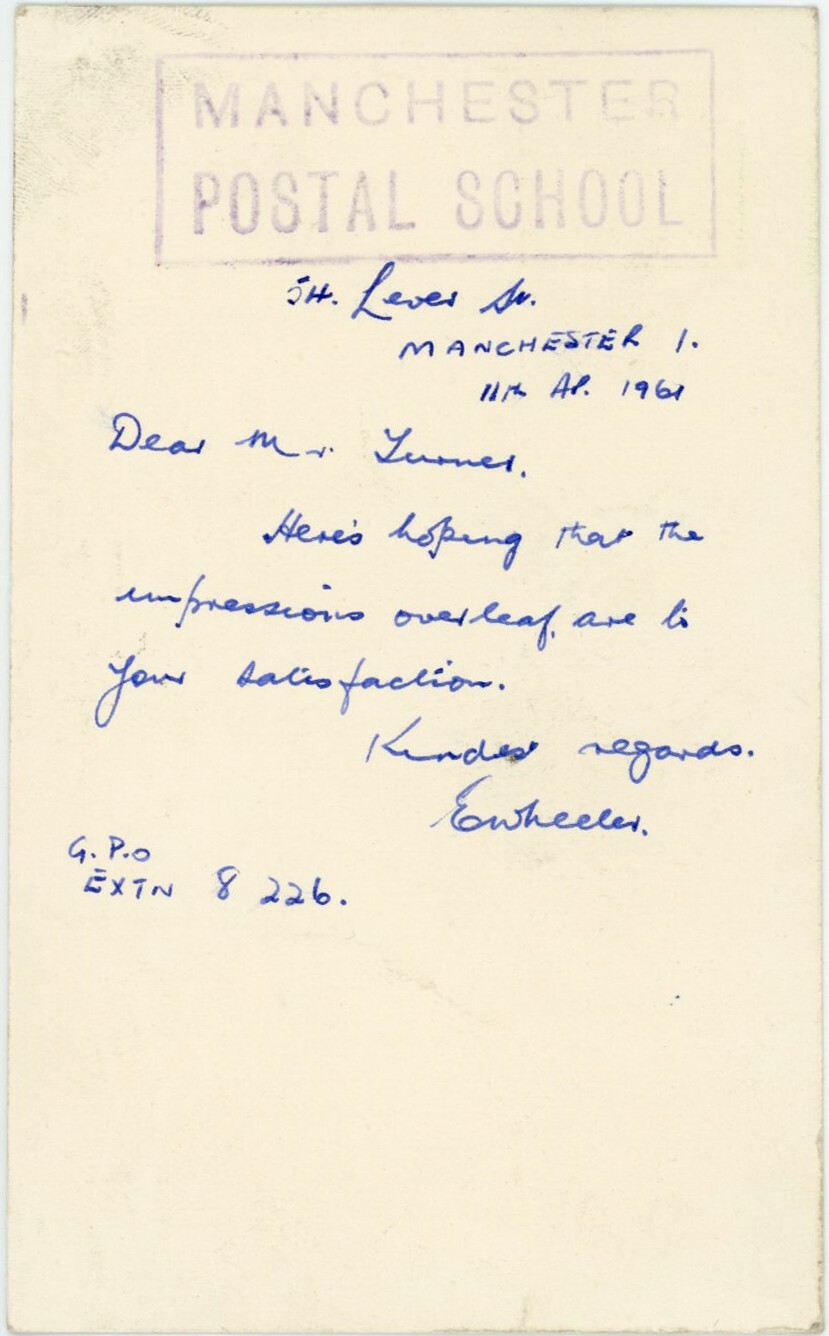 MANCHESTER
POSTAL SCHOOL
54. Lever St.
MANCHESTER 1.
11th AP. 1961
Dear Mr. Turner,
Here's hoping that the
impressions overleaf, are to
your satisfaction.
Kindest regards.
E Wheeler.
G.P.O
EXTN 8226.